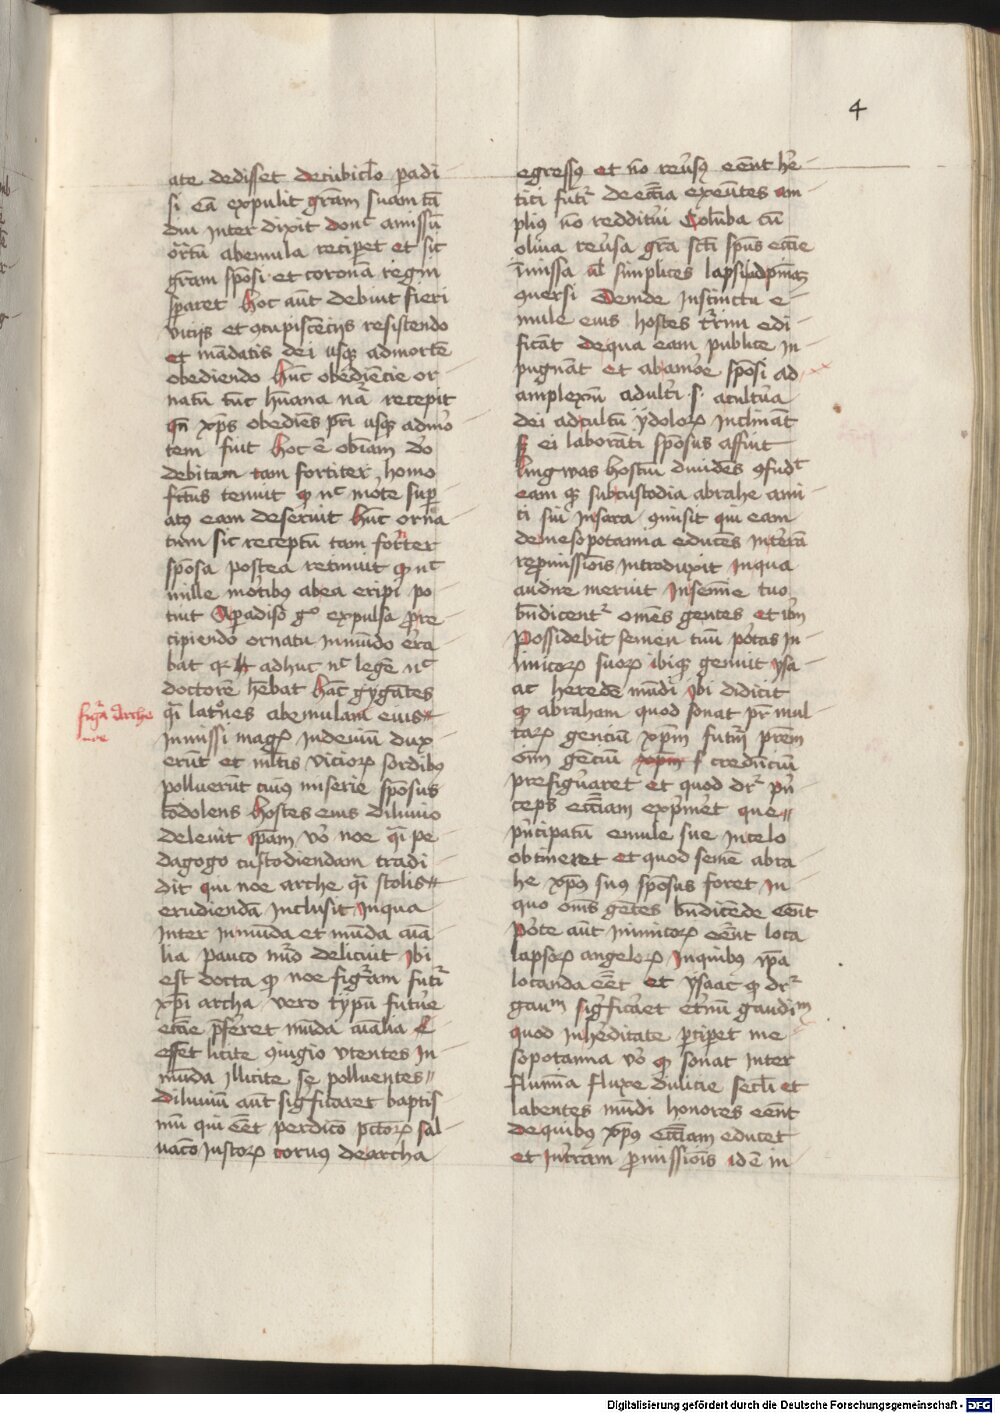 4
ate dedisset decubicl̄o ꝑadi-
si eā expulit gr̄am suam tā
diu inter dixit donc̄ amissū
ortū abemula recip̄et et sic
gr̄am spōsi et coronā regni
sp̄aret hoc aūt debuit fieri
vicijs et ꝯcupiscēcijs resistendo
et mādatis dei usqꝫ admortē
obediendo hūc obediēcie or-
natū tūc hūana nā recepit
qn̄ xp̄s obediēs pr̄i usqꝫ admo-
tem fuit hoc ē ob̄iam do
debitam tam fortiter homo
fc̄tus tenuit qꝫ nc̄ mōte sup̄
atꝯ eam deseruit hūc orna
tum sic receptū tam fort̄ter
spōsa postea retinuit qꝫ nc̄
mille mōtibꝯ abea eripi po
tuit Aꝑadiso gº expulsa p̄re
cipiendo ornatu īmūdo er̄a
bat qꝛ adhuc nc̄ legē nc̄
doctorē hēbat hāc gygātes
figr̄a Arche
noe
qͣi latōes abemulam eius
īmissi magꝭ indeuiū dux
erūt et ml̄tis vicioꝝ sordibꝯ
polluerūt cuiꝯ miserie spōsus
cōdolens hostes eius diluuio
deleuit spām v̄o noe qͣi pe
dagogo custodiendam tradi
dit qui noe arche qͣi scolis
erudiendā inclusit Inqua
inter īmūda et mūda aīa
lia pauco nūo delicuit Ibi
est docta qꝫ noe figr̄am futr̄i
xp̄i archa vero typū futūe
eccīe p̄fer̄et mūda aīalia
essēt licite ꝯiugio vtentes In
mūda illicite se polluentes
diluuiū aūt sigficaret baptis
mū qui eēt perdicō pctōꝝ sal-
uacō Iustoꝝ coruꝯ dearcha
egressꝯ et nō reusꝯ eēnt he-
tici futr̄i deeccīa exeūtes am
pliꝯ nō reddituri Colūba cū
oliua reūsa gr̄a scī sp̄us eccīe
īmissa ul̄ simplices lapsi adpn̄iaꝫ
ꝯuersi Deinde Instinctu e-
mule eius hostes tr̄rim edi
ficāt dequa eam publice in
pugnāt et abamōe spōsi ad
amplexū adulti s. acultūa
dei adcultū ydoloꝝ Inclināt
sꝫ ei laborāti spōsus affuit
lingwas hostiū diuidēs ꝯfudᵗ
eam qꝫ subcustodia abrahe ami
ci sui insara ꝯmisit qui eam
demesopotamia educēs Int̄eram
rep̄missiōis introduxit Inqua
audire meruit Insemīe tuo
bn̄dicentʳ omēs gentes et ibm̄
Possidebit semen tuū pōtas in
imicoꝝ suoꝝ ibiqꝫ genuit ysa
ac heredē mūdi Ibi didicit
qꝫ abraham quod sonat pr̄ mul
taꝝ genciū xp̄m futūi pr̄em
om̄ gēciū s credenciū
prefigūaret et quod drʳ pn̄
ceps eccīam exp̄meret que
pn̄cipatū emule sue incelo
obtineret et quod semē abra
he xp̄us suꝯ spōsus foret In
quo om̄s gētes bn̄dicēde eēnt
Pōte aūt inimicoꝝ eēnt loca
lapsoꝝ angeloꝝ Inquibꝯ ip̄a
locanda eēt et ysaac qꝫ drʳ
gauᵐ sigficaet et̄nū gaudiᵐ
quod inheditate ꝑciꝑet me
sopotamia v̄o qꝫ sonat inter
flumīa fluxꝯe diuicie secl̄i et
labentes mūdi honores eēnt
dequibꝯ xp̄us eccīam educet
et Int̄ram p̄missiōis idē in
Digitalisierung gefördert durch die Deutsche Forschungsgemeinschaft - DFG